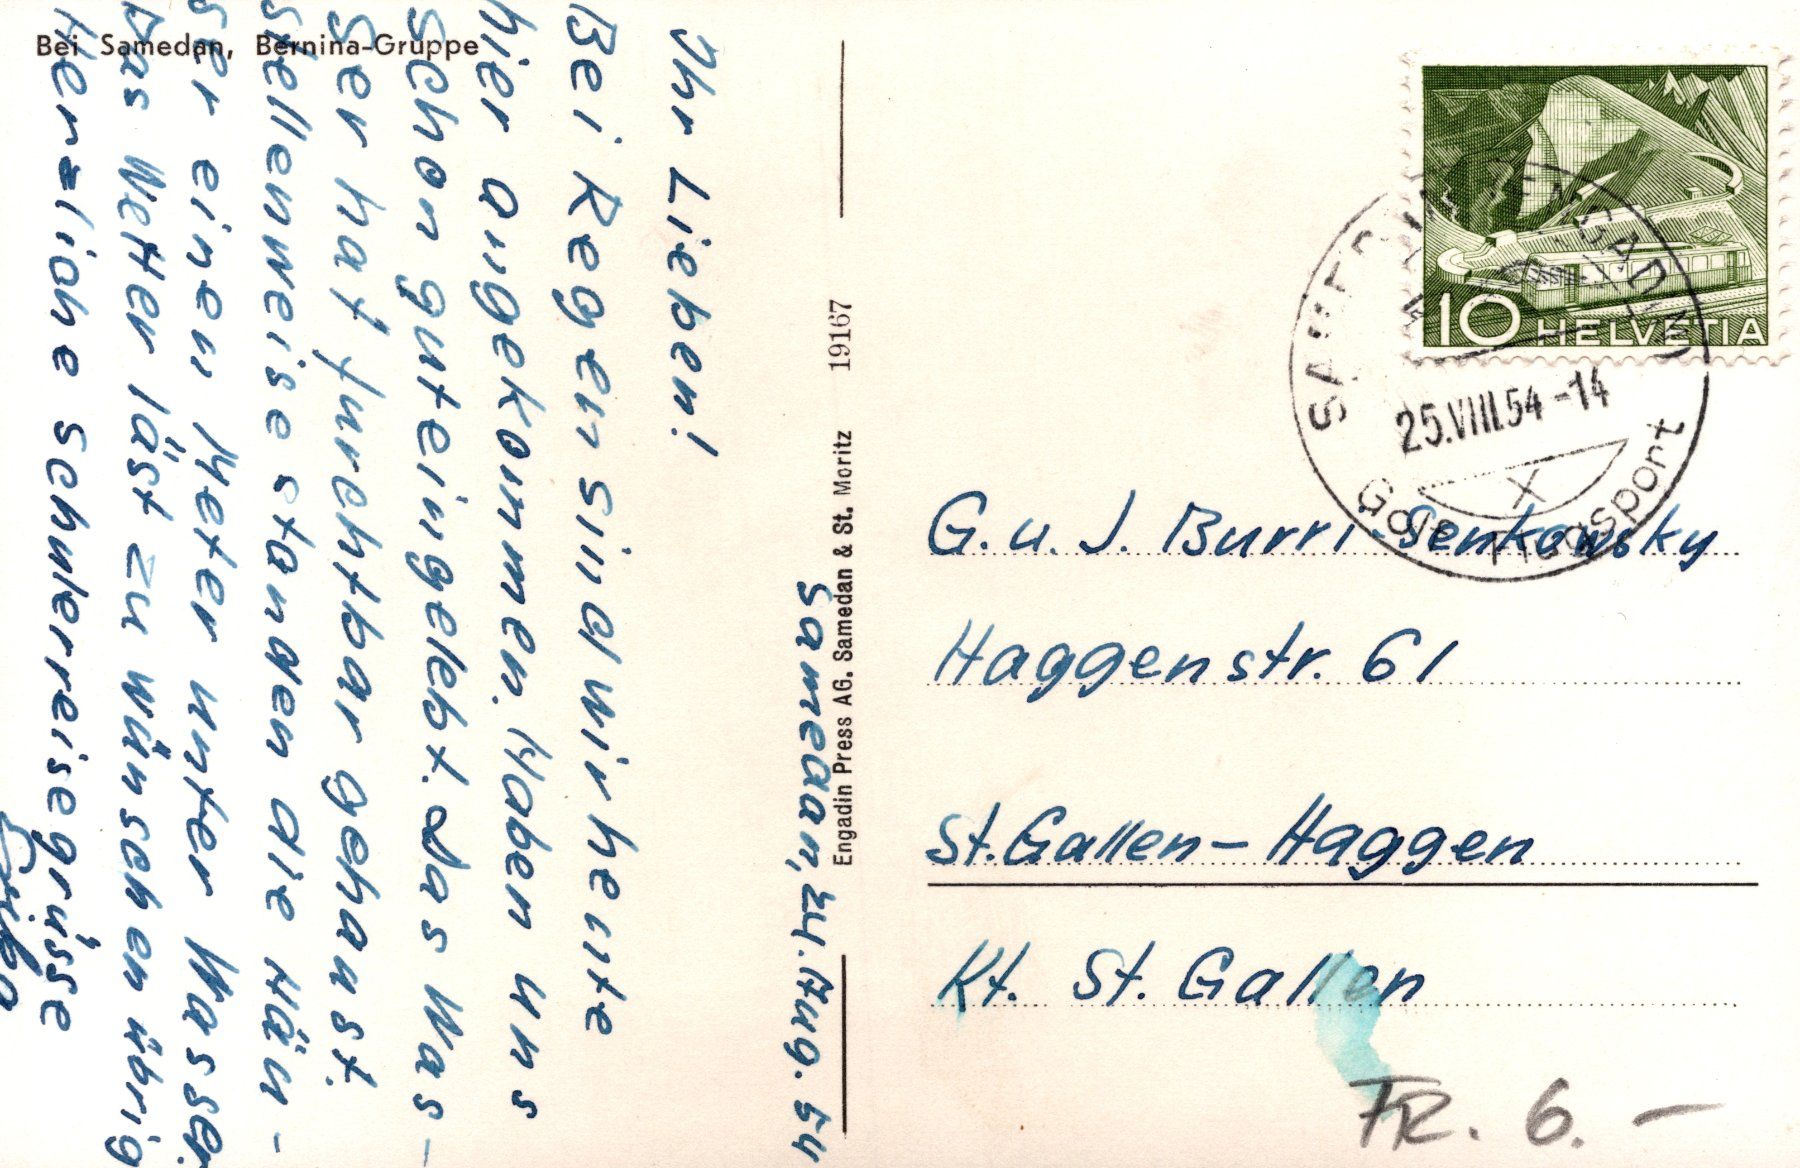 Bei Samedan, Bernina-Gruppe
Samedan, 24. Aug. 54
Ihr Lieben!
Bei Regen sind wir heute
hier angekommen. Haben uns
schon gut eingelebt. Das Was-
ser hat furchtbar gehaust.
Stellenweise standen die Häu-
ser einen Meter unter Wasser.
Das Wetter läst zu wünschen übrig
Herzliche Schulerreisegrüsse
Engadin Press AG. Samedan & St. Moritz 19167
10 HELVETIA
SAMEDAN ENGADIN
25.VIII.54-14
X
Golf Flugsport
G. u. J. Burri-Senkowsky
Haggenstr. 61
St. Gallen - Haggen
Kt. St. Gallen
FR. 6. -